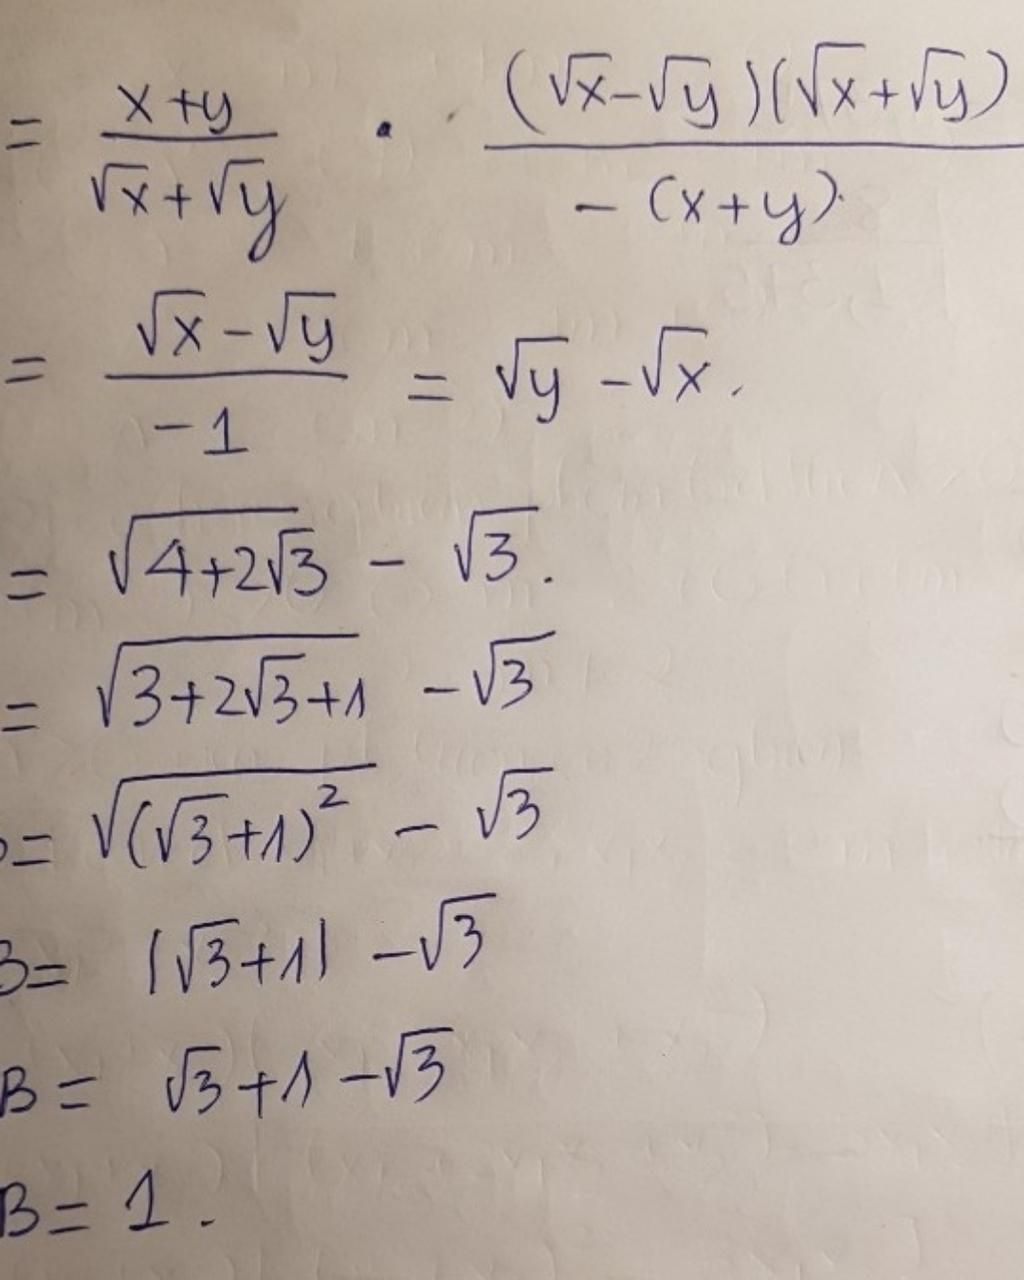 = \frac{x+y}{\sqrt{x}+\sqrt{y}} \cdot \frac{(\sqrt{x}-\sqrt{y})(\sqrt{x}+\sqrt{y})}{-(x+y)}
= \frac{\sqrt{x}-\sqrt{y}}{-1} = \sqrt{y}-\sqrt{x}.
= \sqrt{4+2\sqrt{3}} - \sqrt{3}.
= \sqrt{3+2\sqrt{3}+1} - \sqrt{3}
B= \sqrt{(\sqrt{3}+1)^2} - \sqrt{3}
B= |\sqrt{3}+1| - \sqrt{3}
B= \sqrt{3}+1-\sqrt{3}
B= 1.